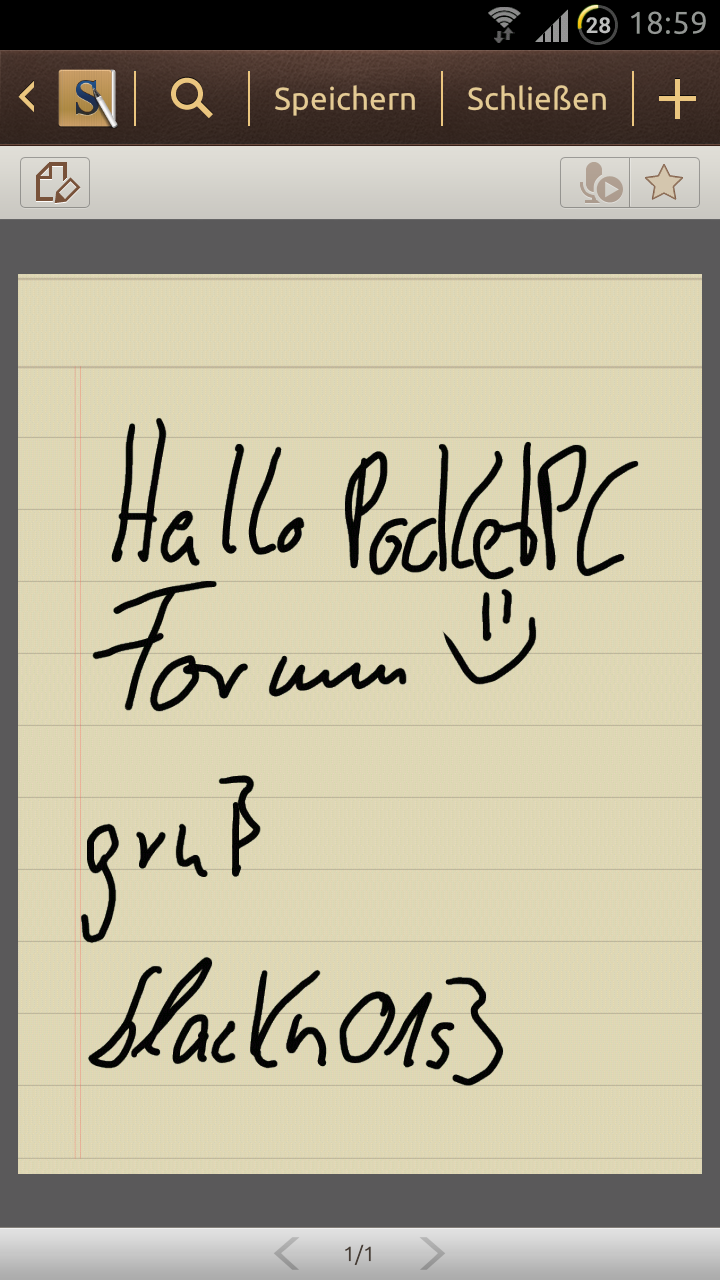 28 18:59
S Speichern Schließen
Hallo PocketPC
Forum
gruß
blackn01s3
1/1